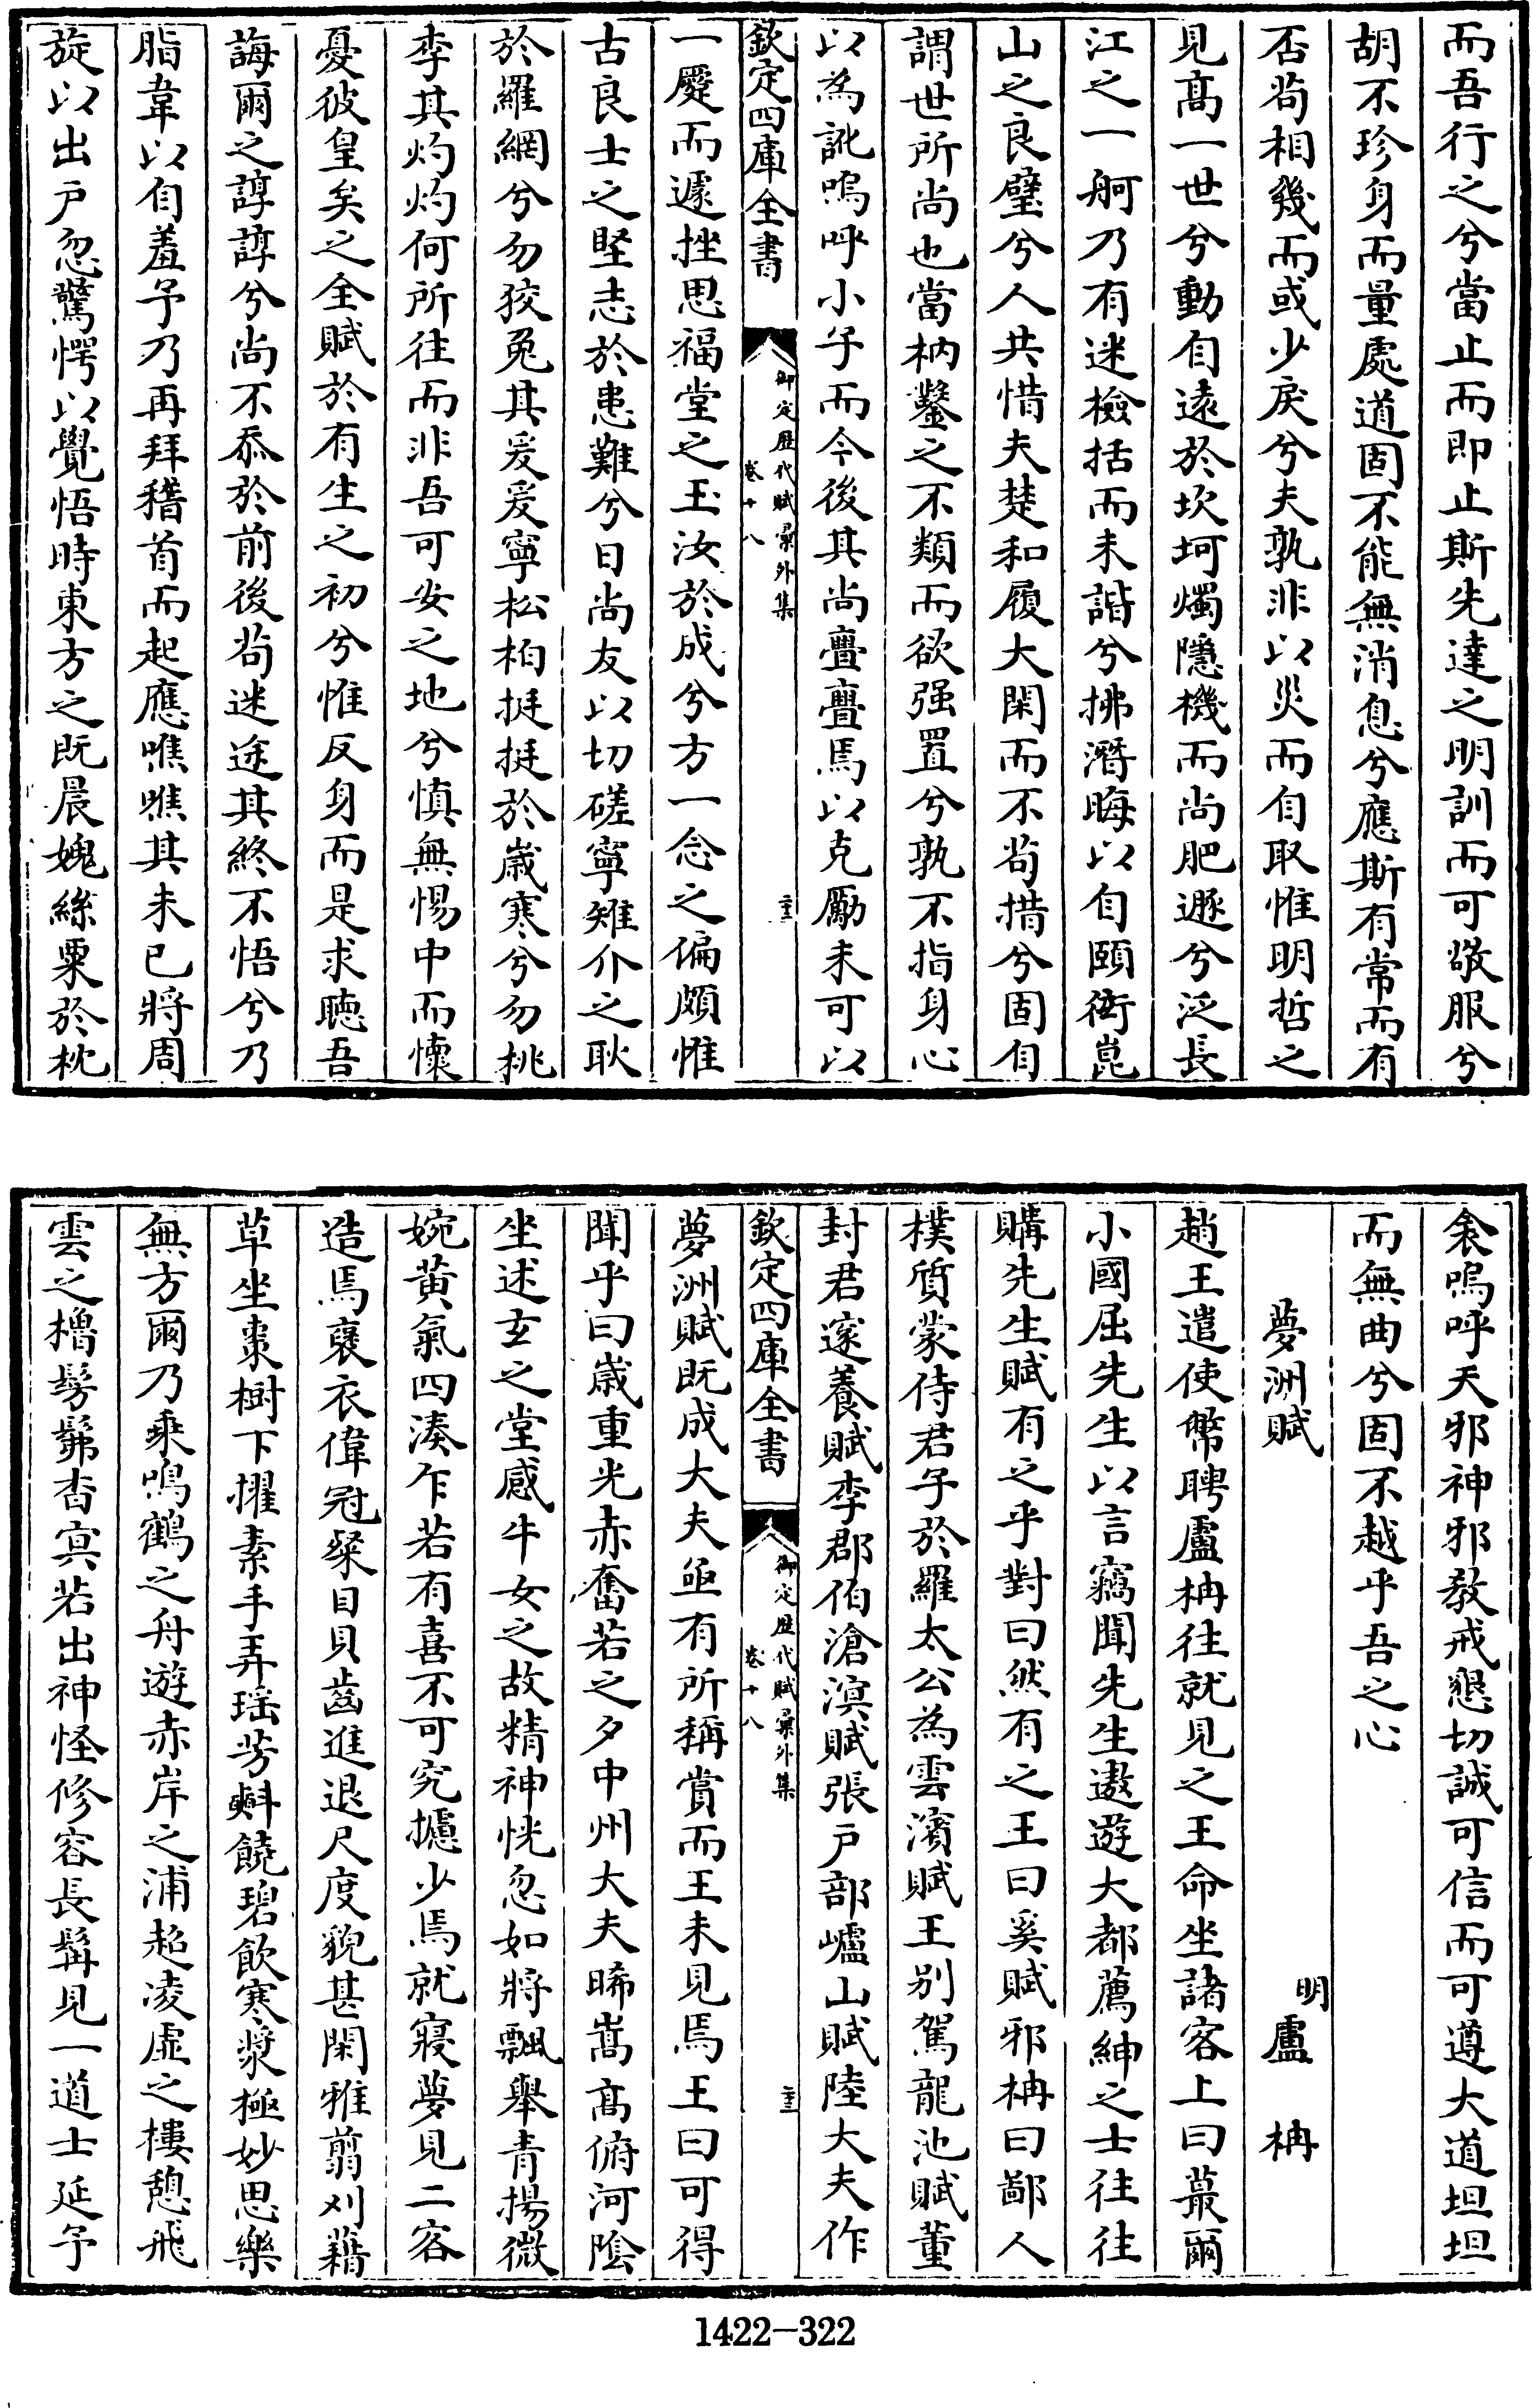 而吾行之兮當止而即止斯先達之明訓而可敬服兮
胡不珍身而量處道固不能無消息兮應斯有常而有
否茍相幾而或少戾兮夫孰非以災而自取惟明哲之
見髙一世兮動自遠於坎坷燭隱機而尚肥遯兮泛長
江之一舸乃有迷檢括而未諧兮拂潛晦以自頤衒崑
山之良璧兮人共惜夫楚和履大閑而不茍措兮固自
謂世所尚也當枘鑿之不類而欲强置兮孰不指身心
以為訛嗚呼小子而今後其尚亹亹焉以克勵未可以
欽定四庫全書
御定歷代賦彙外集
卷十八
一蹙而遽挫思福堂之玉汝於成兮方一念之偏頗惟
古良士之堅志於患難兮日尚友以切磋寧雉介之耿
於羅網兮勿狡兔其爰爰寧松栢挺挺於歲寒兮勿桃
李其灼灼何所往而非吾可安之地兮慎無惕中而懷
憂彼皇矣之全賦於有生之初兮惟反身而是求聽吾
誨爾之諄諄兮尚不忝於前後茍迷途其終不悟兮乃
脂韋以自羞予乃再拜稽首而起應噍噍其未已將周
旋以出戶忽驚愕以覺悟時東方之既晨媿絲粟於枕
衾嗚呼天邪神邪教戒懇切誠可信而可遵大道坦坦
而無曲兮固不越乎吾之心
夢洲賦
明 盧 柟
趙王遣使幣聘盧柟往就見之王命坐諸客上曰蕞爾
小國屈先生以言竊聞先生遨遊大都薦紳之士往往
購先生賦有之乎對曰然有之王曰奚賦邪柟曰鄙人
樸質蒙侍君子於羅太公為雲濱賦王别駕龍池賦董
封君邃養賦李郡伯滄溟賦張戶部爐山賦陸大夫作
欽定四庫全書
御定歷代賦彙外集
卷十八
夢洲賦既成大夫亟有所稱賞而王未見焉王曰可得
聞乎曰歲重光赤奮若之夕中州大夫晞嵩髙俯河陰
坐述玄之堂感牛女之故精神恍忽如將飄舉青揚微
婉黄氣四湊乍若有喜不可究攄少焉就寢夢見二客
造焉裒衣偉冠粲目貝齒進退尺度貌甚閑雅翦刈藉
草坐棗樹下擢素手弄瑶芳㪺饒碧飲寒漿極妙思樂
無方爾乃乘鳴鶴之舟遊赤岸之浦超凌虛之樓憩飛
雲之櫓髣髴杳㝠若出神怪修容長髯見一道士延予
1422-322